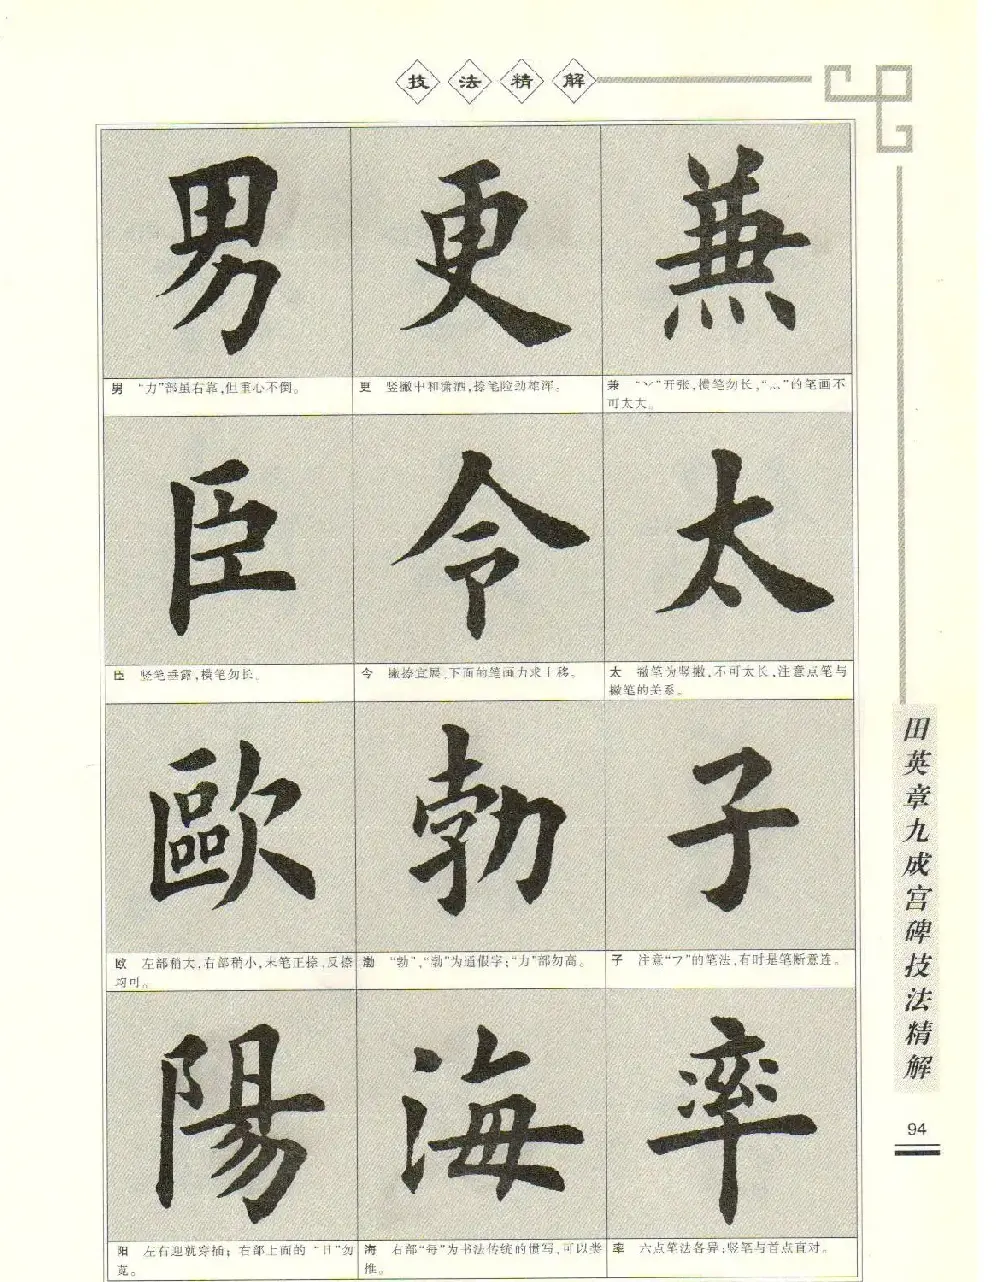 技法精解
男
更
兼
男 “力”部虽右靠，但重心不倒。
更 竖撇中和潇洒，捺笔险劲雄浑。
兼 “丷”开张，横笔勿长，“灬”的笔画不
可太大。
臣
令
太
臣 竖笔垂露，横笔勿长。
令 撇捺宜展，下面的笔画力求上移。
太 撇笔为竖撇，不可太长，注意点笔与
撇笔的关系。
歐
勃
子
欧 左部稍大，右部稍小，末笔正捺、反捺
均可。
渤 “勃”、“渤”为通假字；“力”部勿高。
子 注意“㇇”的笔法，有时是笔断意连。
陽
海
率
阳 左右迎就穿插；右部上面的“日”勿
宽。
海 右部“每”为书法传统的惯写，可以类
推。
率 六点笔法各异；竖笔与首点直对。
田英章九成宫碑技法精解
94